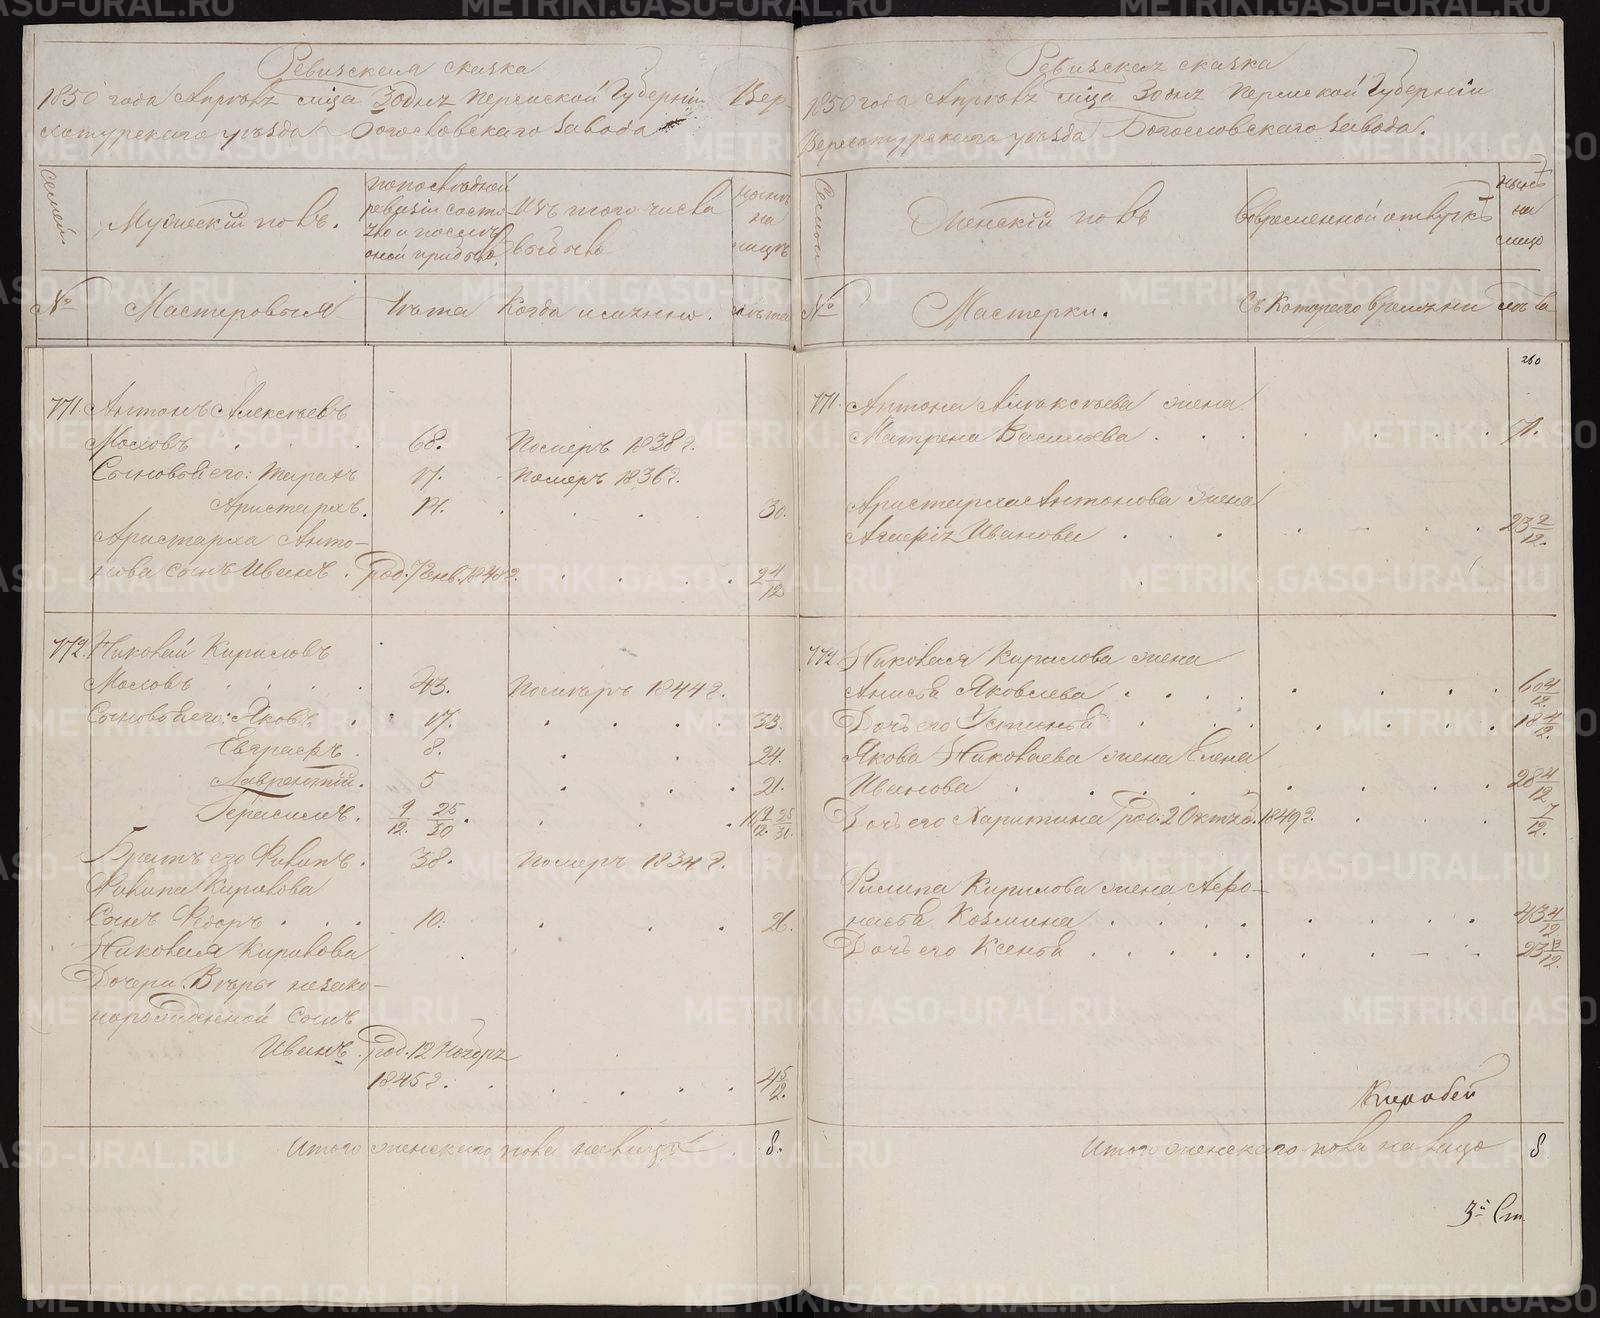 Ревизская сказка
1850 года Апреля м-ца 30 дня Пермской Губернии Вер-
хотурскаго уезда Богословскаго завода
Семей
Мужеский полъ.
по последной
ревизии состо
яло и после
оной прибыло.
Изъ того числа
выбыло
ныне
на
лицо
№
Мастеровыя
Лета
Когда именно.
лета
771. Антонъ Алексеевъ
Мохов 68. Померъ 1838 г.
Сыновья его: 17. Померъ 1836 г.
Аристархъ. 14. 30.
Аристарха Анто-
нова сынъ Иванъ. род. 7 Янв. 184 г. 2 4/12
772. Николай Кириловъ
43. Померъ 1844 г.
Сыновья его: Яковъ 17. 33.
Евграфъ. 8. 24.
Лаврентий. 5 21.
Герасимъ. 9/12 25/30 16 9/12 25/30
Братъ его Филипъ. 38. Померъ 1834 г.
Филипа Кирилова
Сынъ Федоръ 10. 26.
Николая Кирилова
Дочери Веры незако-
норожденной сынъ
Иванъ. род. 12 Ноября
1845 г. 4 5/12
Итого женскаго пола налицо 8.
Ревизская сказка
1850 года Апреля м-ца 30 дня Пермской Губернии
Верхотурскаго уезда Богословскаго завода.
Семьи
Женский полъ
Во временной отлучке
ныне
на
лицо
№
Мастерки.
Съ котораго времени
лета
260
771. Антона Алексеева жена
Матрена Васильева 71.
Аристарха Антонова жена
Агафья Иванова 23 2/12.
772 Николая Кирилова жена
Анисья Яковлева 60 4/12.
Дочь его Устинья 18 4/12.
Якова Николаева жена Елена
Иванова 28 4/12
Дочь его Харитина род. 2 Октяб. 1849 г. 7/12.
Филипа Кирилова жена Афо-
насья Козмина 43 4/12.
Дочь его Ксенья 23 /12.
Итого женскаго пола налицо 8
3й Ст.
METRIKI.GASO-URAL.RU